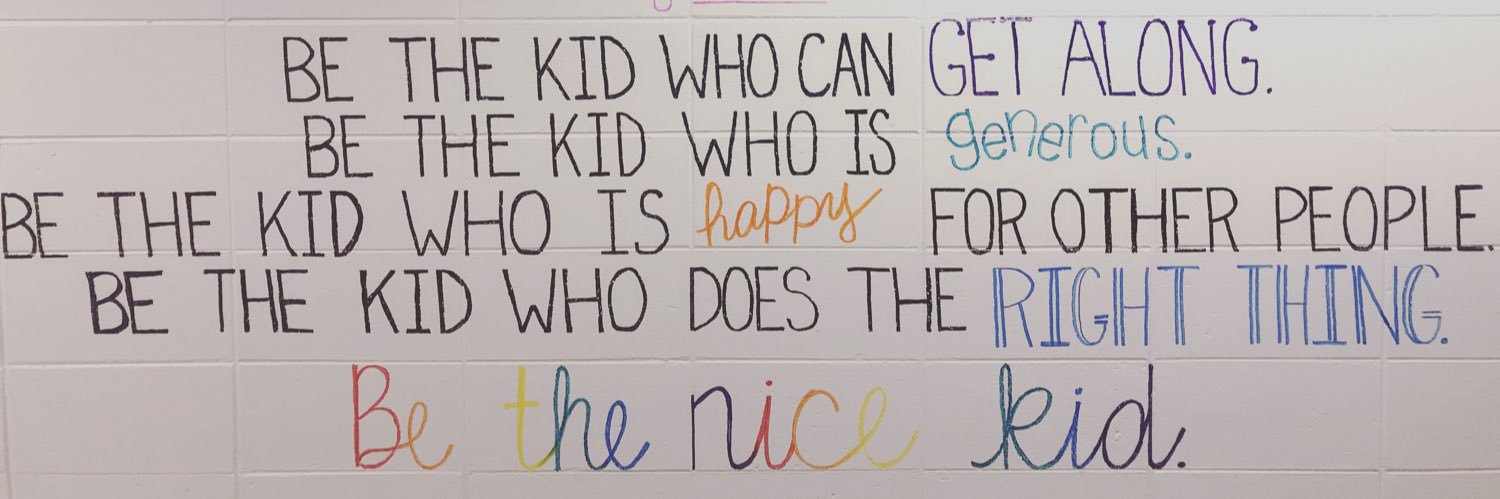 BE THE KID WHO CAN GET ALONG.
BE THE KID WHO IS generous.
BE THE KID WHO IS happy FOR OTHER PEOPLE.
BE THE KID WHO DOES THE RIGHT THING.
Be the nice kid.